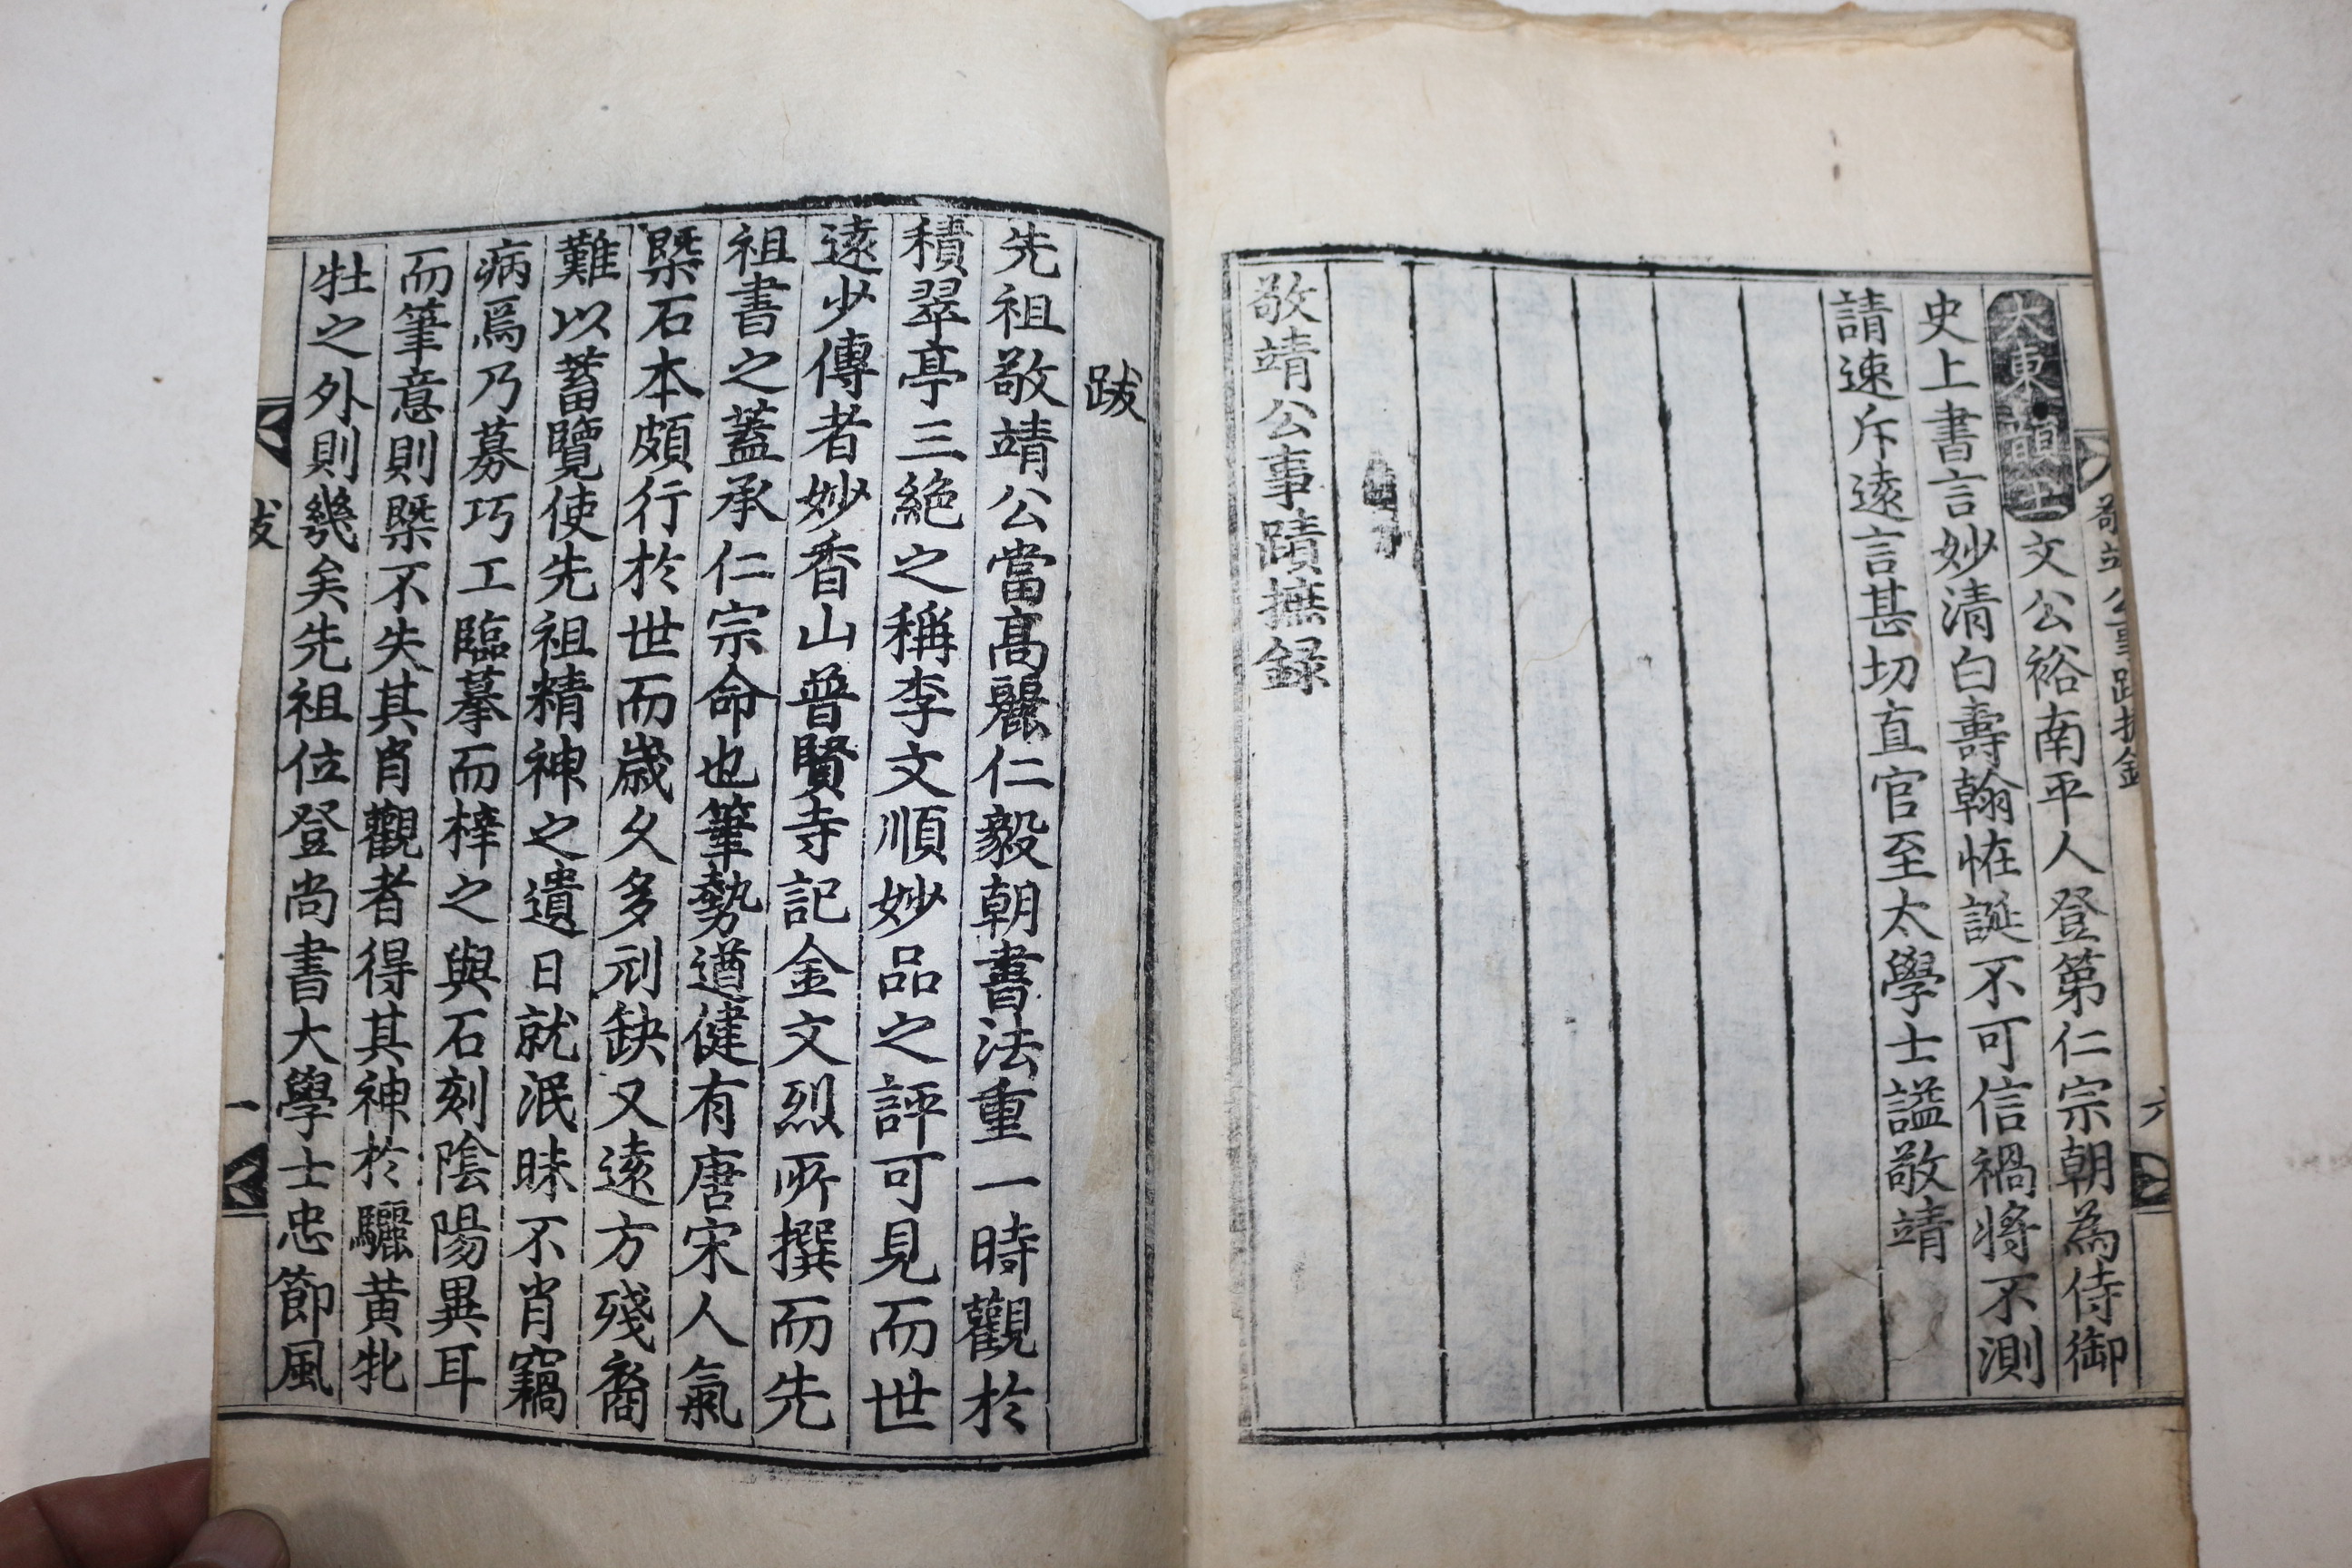 大東韻士文公裕南平人登第仁宗朝為侍御
史上書言妙清白壽翰恠誕不可信禍將不測
請速斥遠言甚切直官至太學士謚敬靖
敬靖公事蹟摭録
六
跋
先祖敬靖公當高麗仁毅朝書法重一時觀於
積翠亭三絶之稱李文順妙品之評可見而世
遠少傳者妙香山普賢寺記金文烈所撰而先
祖書之蓋承仁宗命也筆勢遒健有唐宋人氣
槩石本頗行於世而歲久多刓缺又遠方殘裔
難以蓄覽使先祖精神之遺日就泯昧不肖竊
病焉乃募巧工臨摹而梓之與石刻陰陽異耳
而筆意則槩不失其肖觀者得其神於驪黃牝
牡之外則幾矣先祖位登尚書大學士忠節風
跋
一